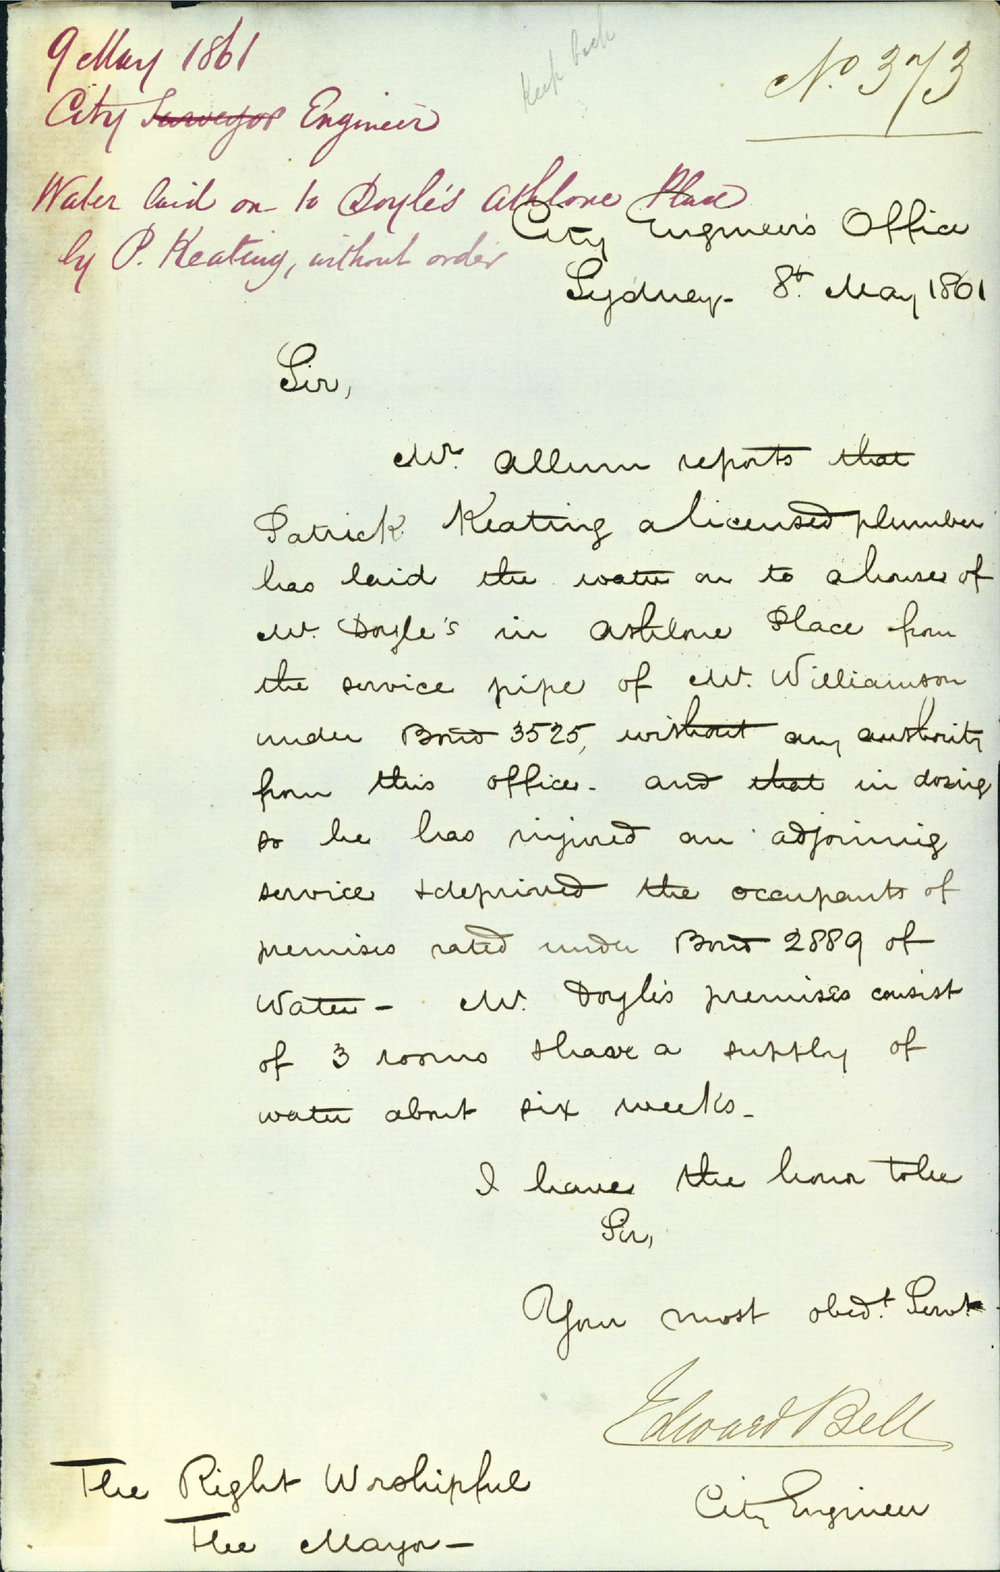 9 May 1861
City Surveyor Engineer
Keep back
No 373
Water laid on to Doyle's Athlone Place
by P. Keating, without order
City Engineer's Office
Sydney - 8t. May 1861
Sir,
Mr. Allum reports that
Patrick Keating a licensed plumber
has laid the water on to a house of
Mr. Doyle's in Athlone Place from
the service pipe of Mr. Williamson
under Bond 3525, without any authority
from this office - and that in doing
so he has injured an adjoining
service & deprived the occupants of
premises rated under Bond 2889 of
Water - Mr. Doyle's premises consist
of 3 rooms & have a supply of
water about six weeks -
I have the honor to be
Sir,
Your most obedt. Servt.
Edward Bell
City Engineer
The Right Worshipful
The Mayor -